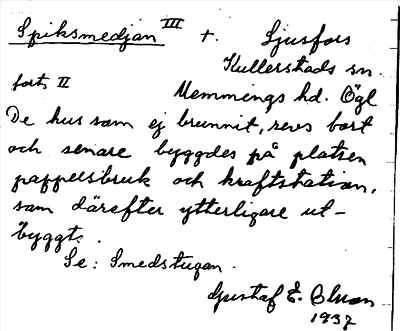 Spiksmedjan III + Ljusfors
Kullerstads sn.
forts II Memmings hd. Ögl
De hus som ej brunnit, revs bort
och senare byggdes på platsen
pappersbruk och kraftstation,
som därefter ytterligare ut-
byggts.
Se: Smedstugan.
Gustaf E. Olson
1937